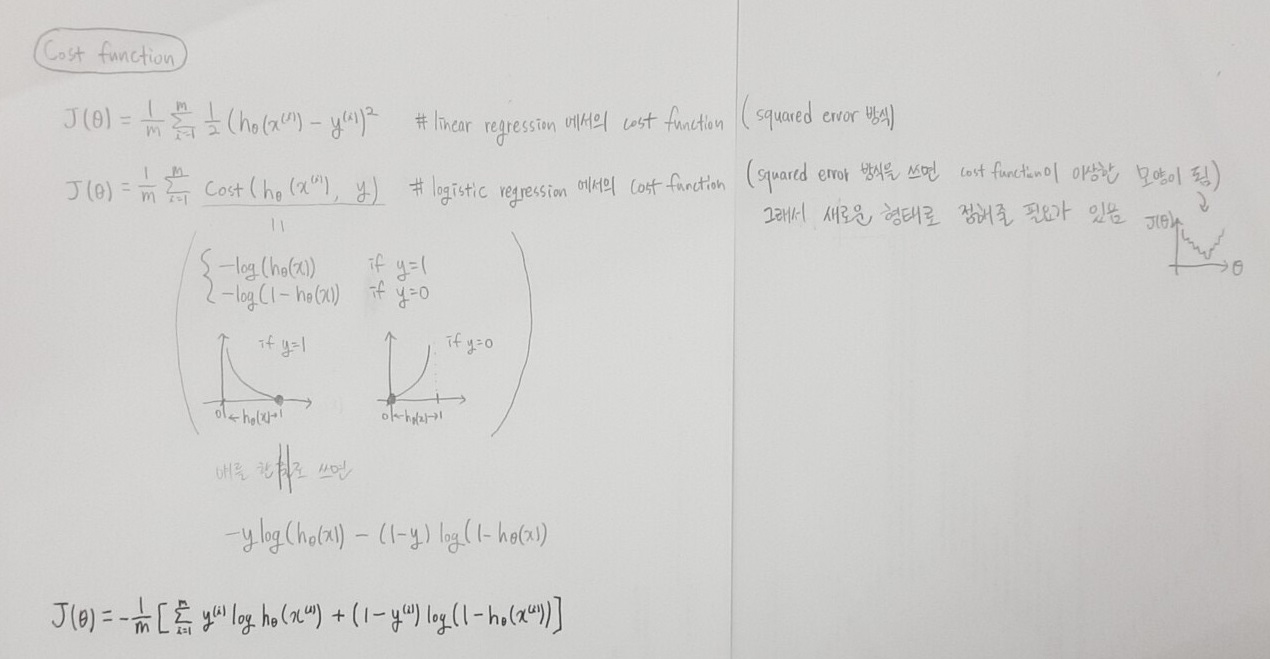 Cost function
J(θ) = 1/m Σ_{i=1}^{m} 1/2 (hθ(x⁽ⁱ⁾) − y⁽ⁱ⁾)² # linear regression 에서의 cost function (squared error 방식)
J(θ) = 1/m Σ_{i=1}^{m} Cost(hθ(x⁽ⁱ⁾), y) # logistic regression 에서의 cost function (squared error 방식을 쓰면 cost function이 이상한 모양이 됨)
그래서 새로운 형태로 정해줄 필요가 있음
J(θ)
θ
=
−log(hθ(x)) if y=1
−log(1−hθ(x)) if y=0
if y=1
if y=0
0 ←hθ(x)→ 1
0 ←hθ(x)→ 1
얘를 한 로 쓰면
−y log(hθ(x)) − (1−y) log(1−hθ(x))
J(θ) = −1/m [Σ_{i=1}^{m} y⁽ⁱ⁾ log hθ(x⁽ⁱ⁾) + (1−y⁽ⁱ⁾) log(1−hθ(x⁽ⁱ⁾))]